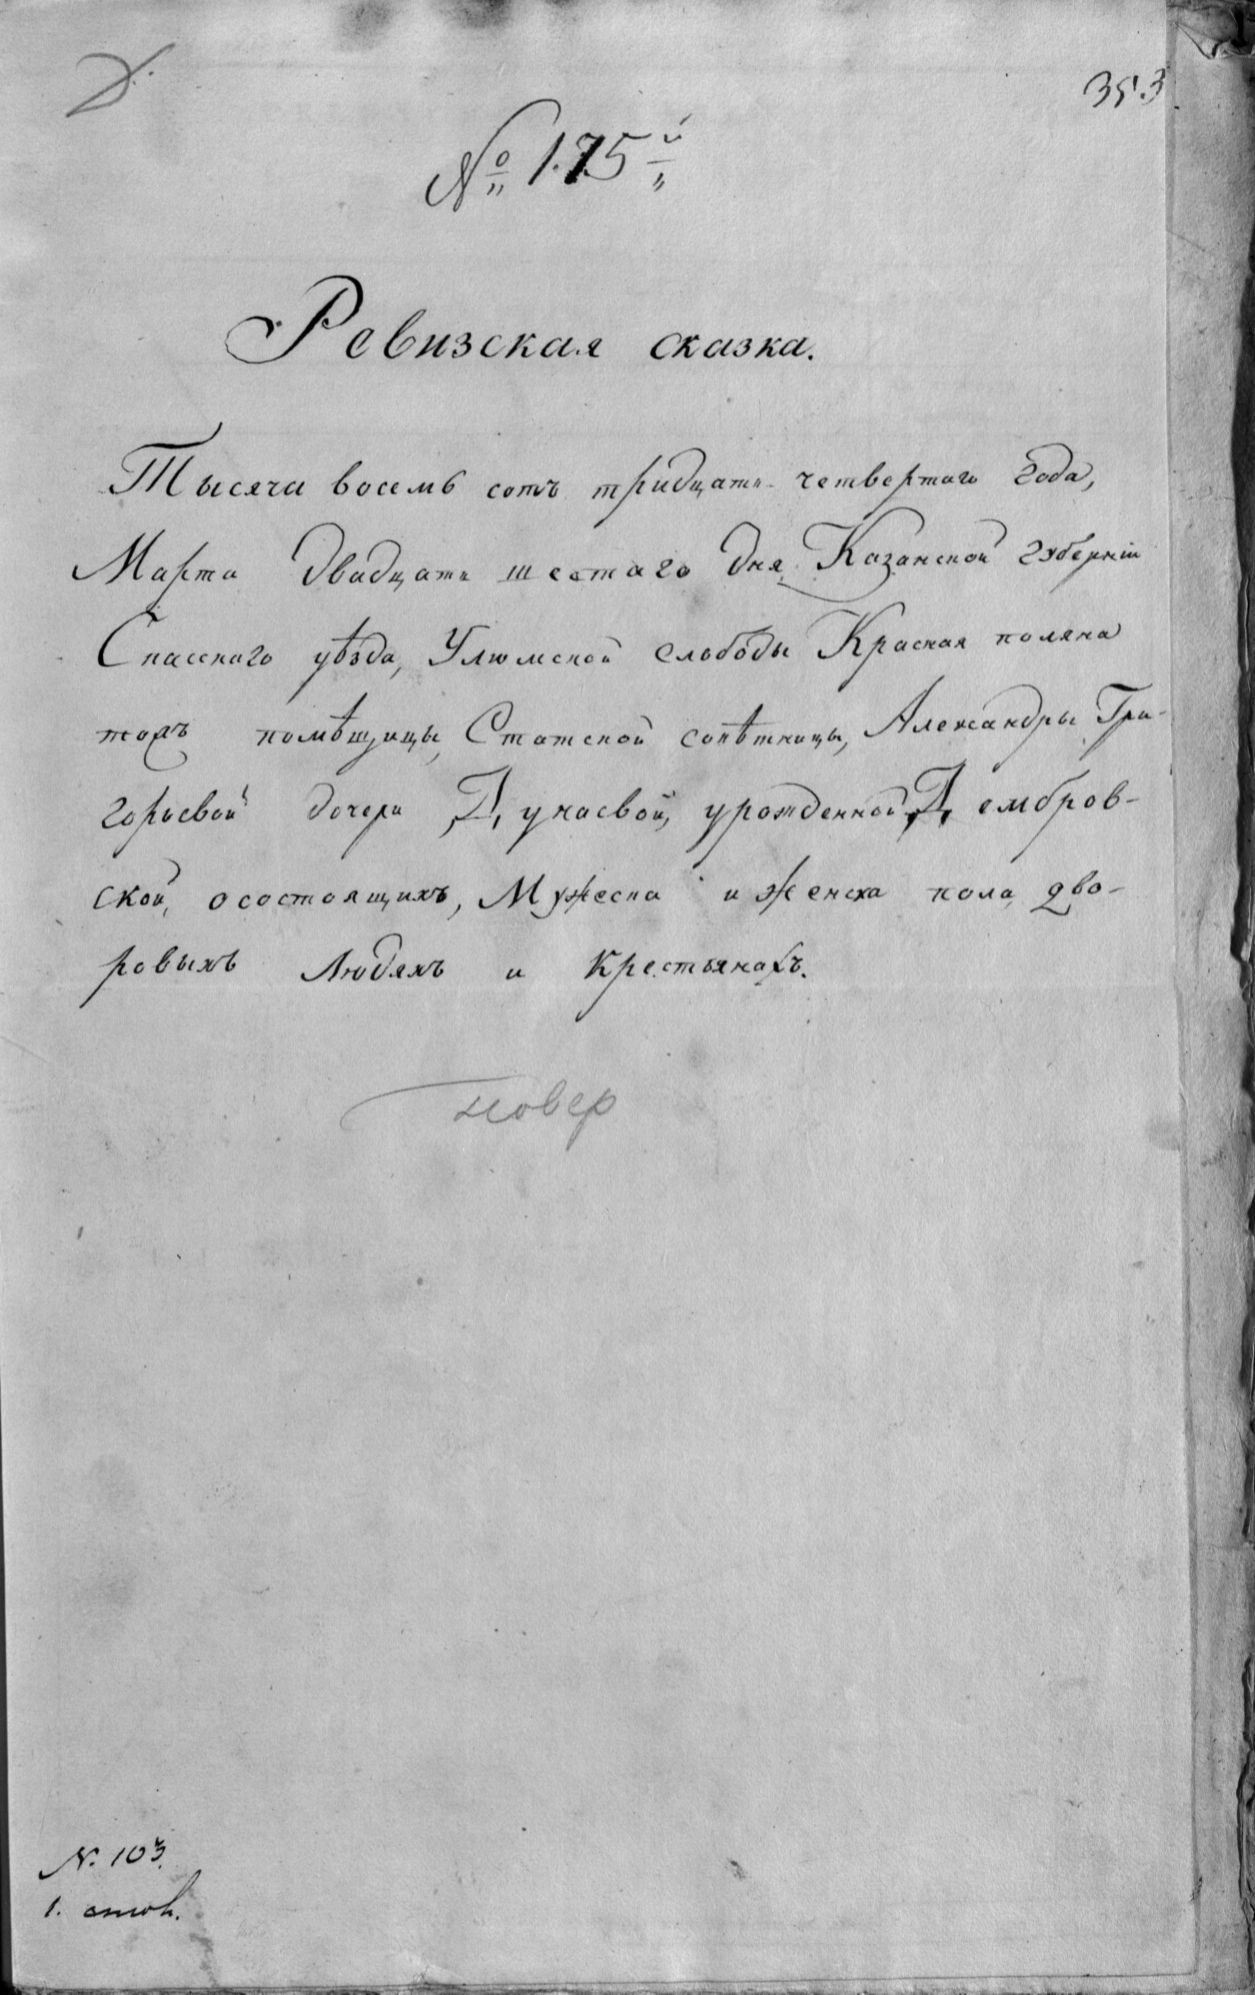 353
№ 175й
Ревизская сказка.
Тысяча восемь сотъ тридцать четвертаго года,
Марта двадцать шестаго дня Казанской губерніи
Спасскаго уѣзда, Улюмской слободы Красная поляна
тожъ помѣщицы, Статской совѣтницы, Александры Гри-
горьевой дочери Дунаевой, урожденной Дембров-
ской, осостоящихъ, Мужеска и женска пола дво-
ровыхъ Людяхъ и Крестьянахъ.
повер
N. 103.
1.